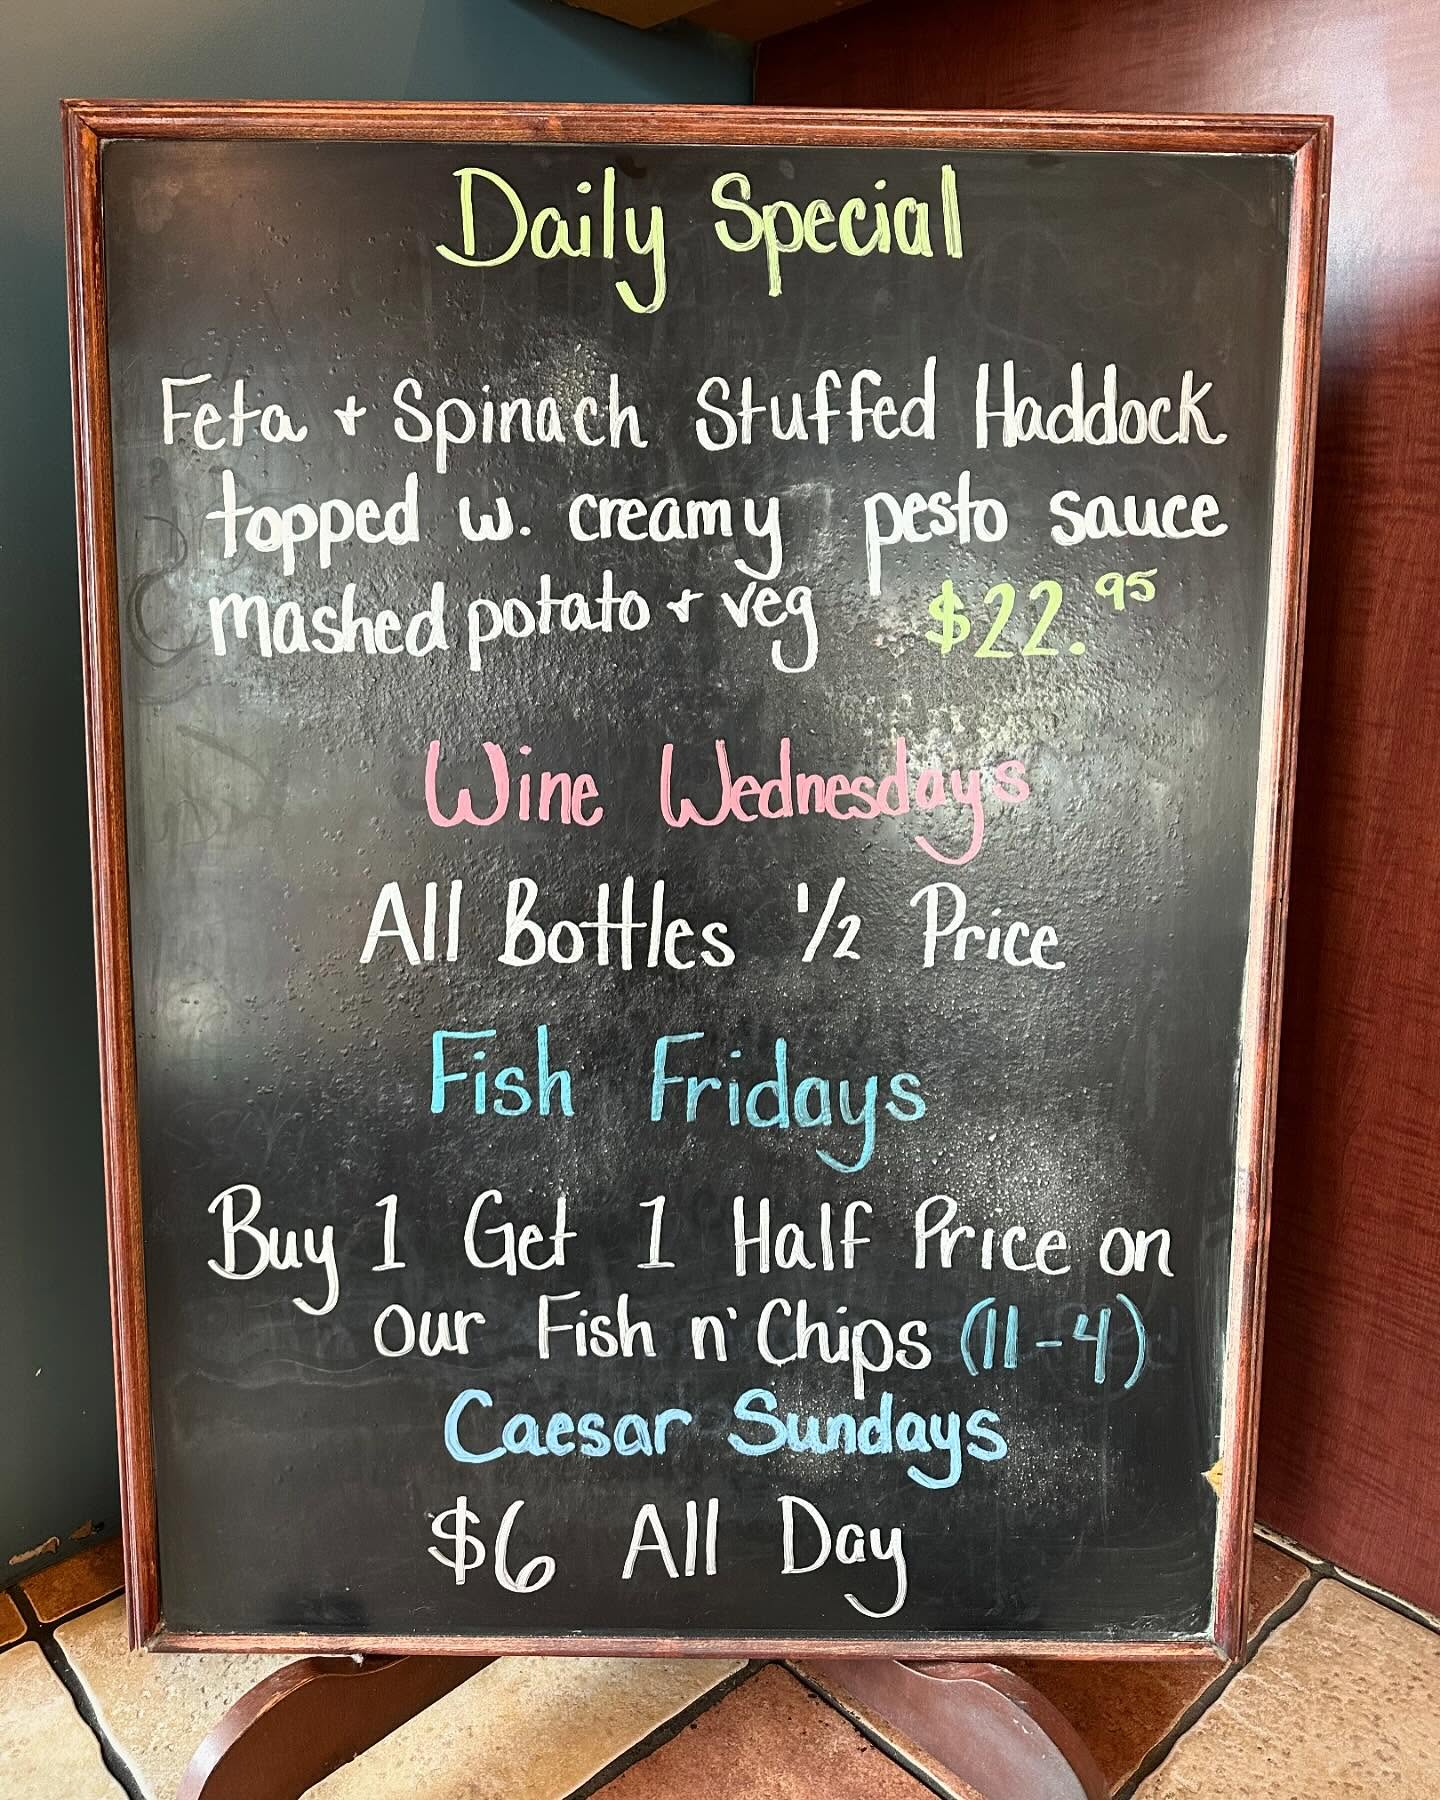 Daily Special
Feta + Spinach Stuffed Haddock
topped w. creamy pesto sauce
mashed potato + veg $22.95
Wine Wednesdays
All Bottles 1/2 Price
Fish Fridays
Buy 1 Get 1 Half Price on
our Fish n' Chips (11-4)
Caesar Sundays
$6 All Day